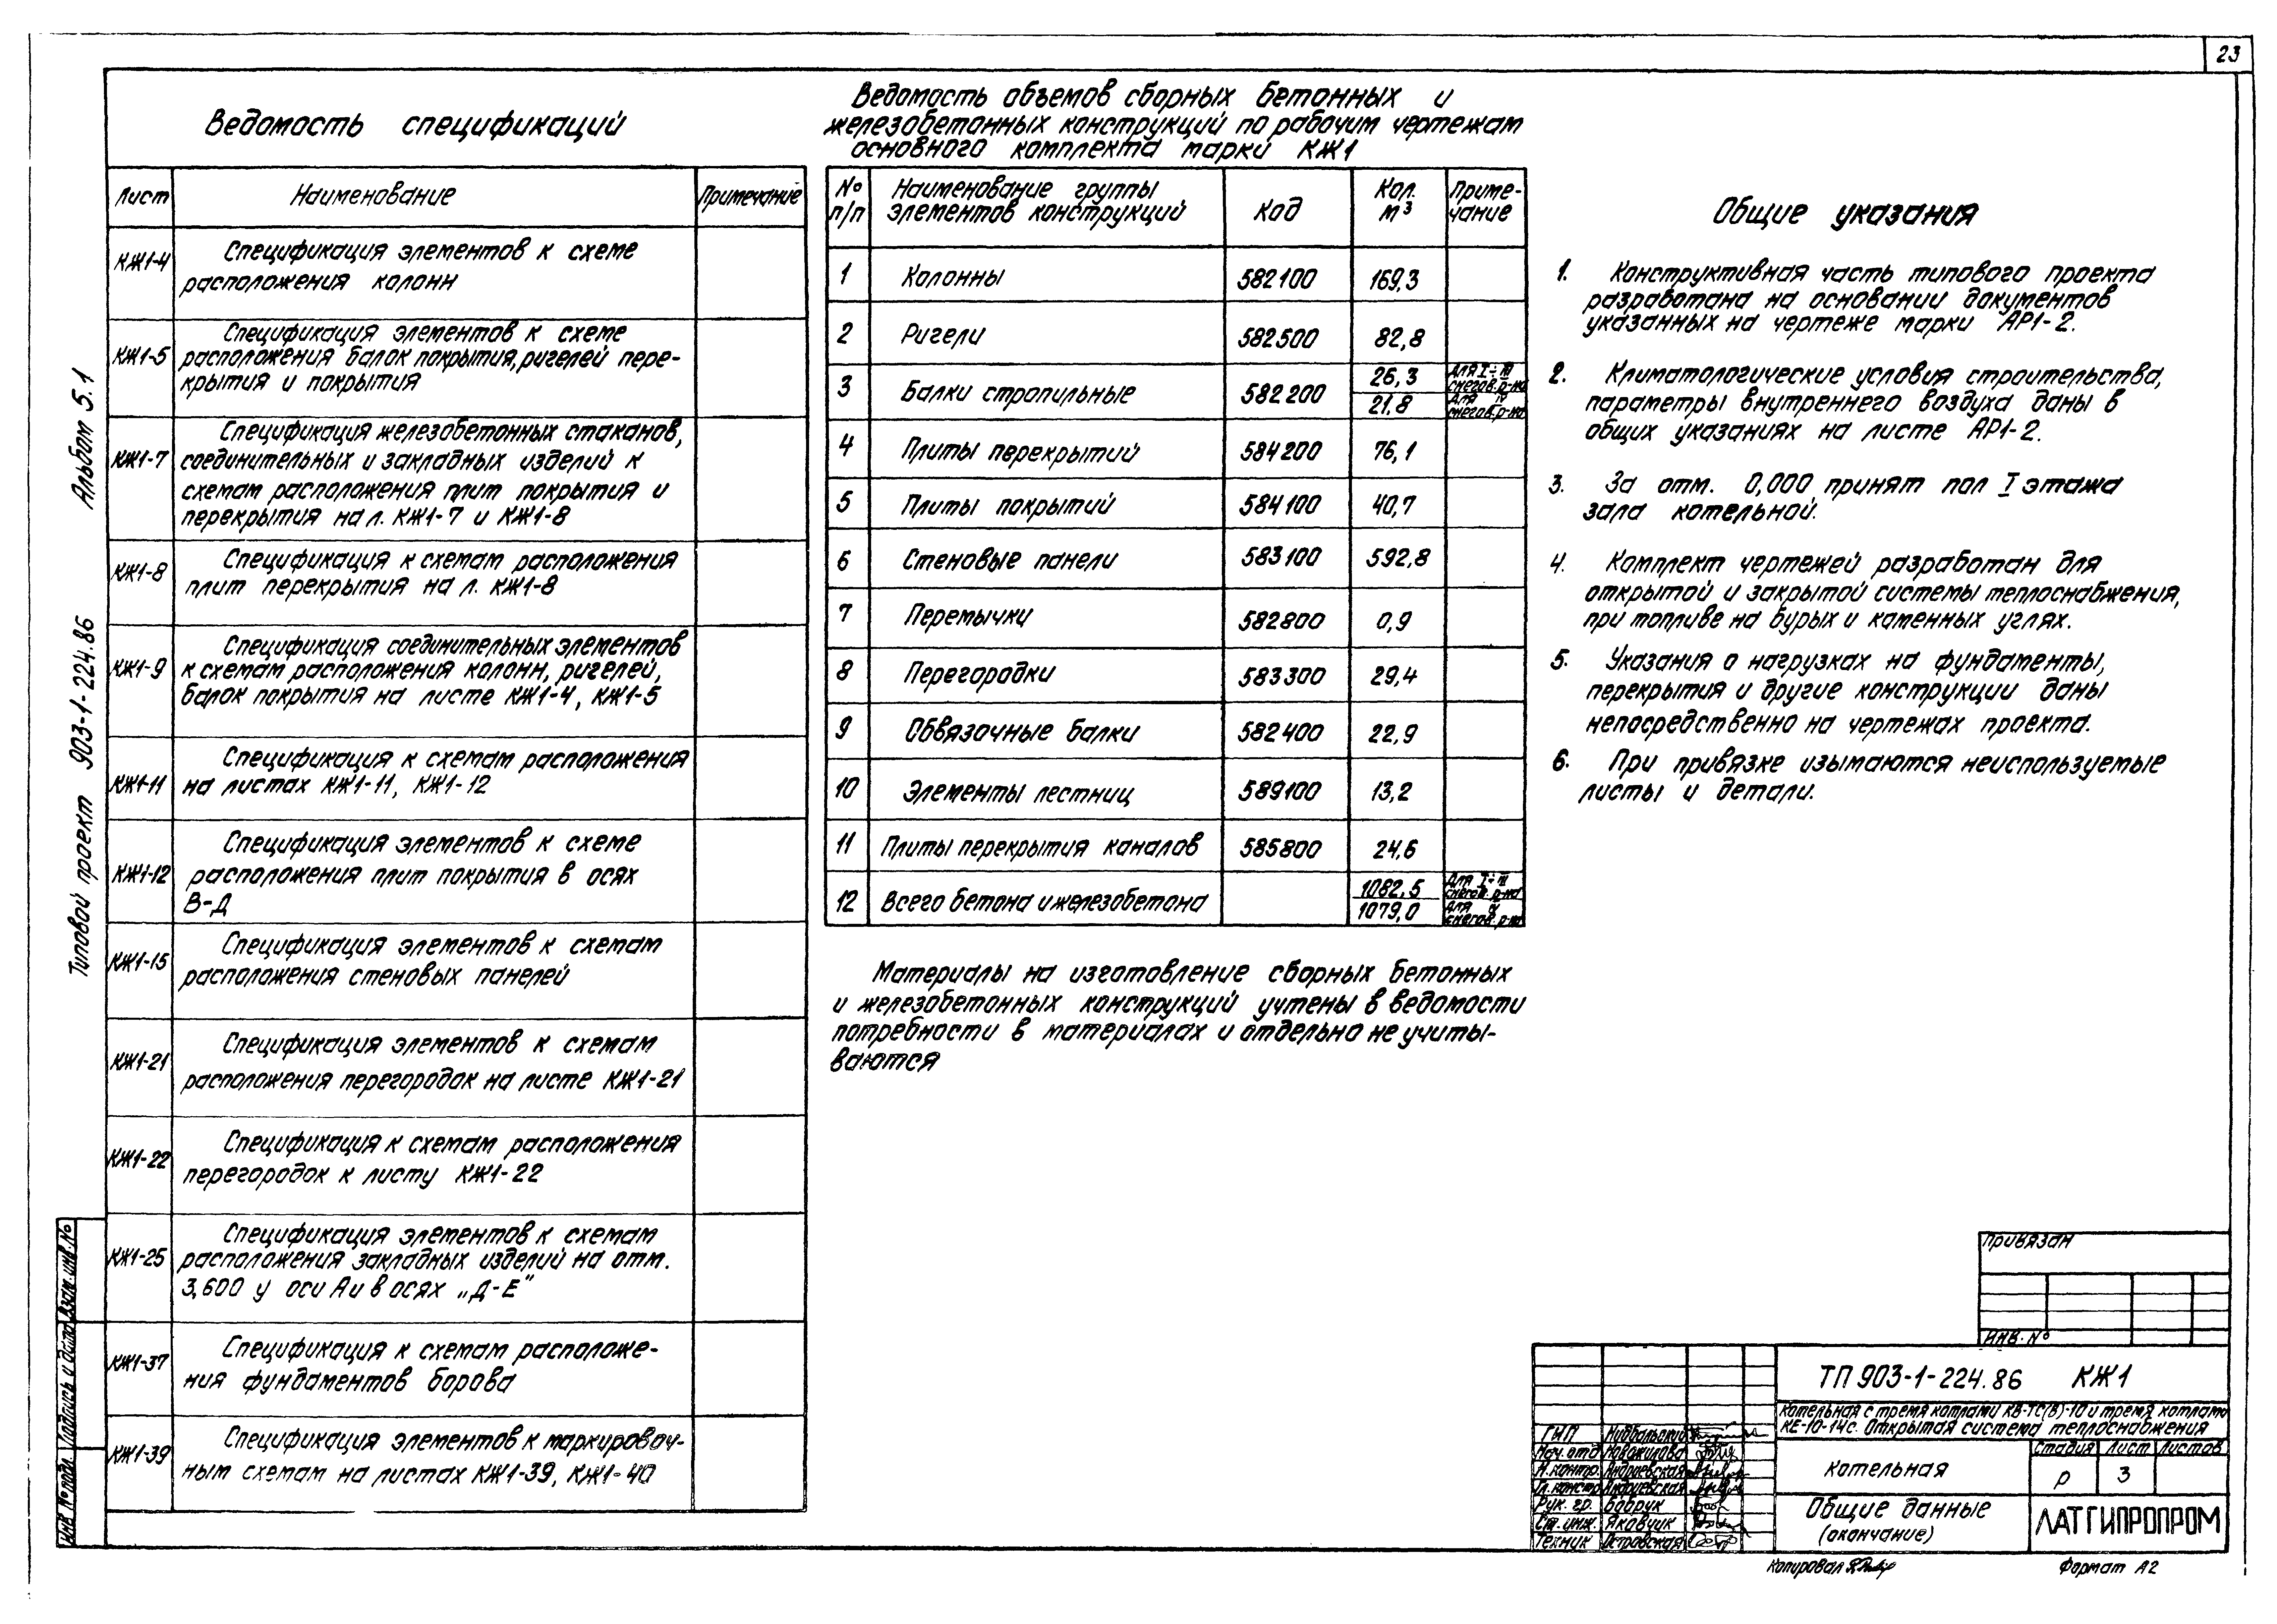 23
Ведомость спецификаций
Лист Наименование Примечание
КЖ1-4 Спецификация элементов к схеме
расположения колонн
КЖ1-5 Спецификация элементов к схеме
расположения балок покрытия, ригелей пере-
крытия и покрытия
КЖ1-7 Спецификация железобетонных стаканов,
соединительных и закладных изделий к
схемам расположения плит покрытия и
перекрытия на л. КЖ1-7 и КЖ1-8
КЖ1-8 Спецификация к схемам расположения
плит перекрытия на л. КЖ1-8
КЖ1-9 Спецификация соединительных элементов
к схемам расположения колонн, ригелей,
балок покрытия на листе КЖ1-4, КЖ1-5
КЖ1-11 Спецификация к схемам расположения
на листах КЖ1-11, КЖ1-12
КЖ1-12 Спецификация элементов к схеме
расположения плит покрытия в осях
В-Д
КЖ1-15 Спецификация элементов к схемам
расположения стеновых панелей
КЖ1-21 Спецификация элементов к схемам
расположения перегородок на листе КЖ1-21
КЖ1-22 Спецификация к схемам расположения
перегородок к листу КЖ1-22
КЖ1-25 Спецификация элементов к схемам
расположения закладных изделий на отм.
3,600 у оси А и в осях „Д-Е"
КЖ1-37 Спецификация к схемам расположе-
ния фундаментов борова
КЖ1-39 Спецификация элементов к маркировоч-
ным схемам на листах КЖ1-39, КЖ1-40
Ведомость объемов сборных бетонных и
железобетонных конструкций по рабочим чертежам
основного комплекта марки КЖ1
№ п/п Наименование группы элементов конструкций Код Кол. м³ Приме-чание
1 Колонны 582100 169,3
2 Ригели 582500 82,8
3 Балки стропильные 582200 26,3 для I÷III снегов. р-на
21,8 для IV снегов. р-на
4 Плиты перекрытий 584200 76,1
5 Плиты покрытий 584100 40,7
6 Стеновые панели 583100 592,8
7 Перемычки 582800 0,9
8 Перегородки 583300 29,4
9 Обвязочные балки 582400 22,9
10 Элементы лестниц 589100 13,2
11 Плиты перекрытия каналов 585800 24,6
12 Всего бетона и железобетона 1082,5 для I÷III снегов. р-на
1079,0 для IV снегов. р-на
Материалы на изготовление сборных бетонных
и железобетонных конструкций учтены в ведомости
потребности в материалах и отдельно не учиты-
ваются
Общие указания
1. Конструктивная часть типового проекта
разработана на основании документов
указанных на чертеже марки АР1-2.
2. Климатологические условия строительства,
параметры внутреннего воздуха даны в
общих указаниях на листе АР1-2.
3. За отм. 0,000 принят пол I этажа
зала котельной.
4. Комплект чертежей разработан для
открытой и закрытой системы теплоснабжения,
при топливе на бурых и каменных углях.
5. Указания о нагрузках на фундаменты,
перекрытия и другие конструкции даны
непосредственно на чертежах проекта.
6. При привязке изымаются неиспользуемые
листы и детали.
Типовой проект 903-1-224.86 Альбом 5.1
Инв № подл. Подпись и дата Взам. инв. №
Привязан
Инв. №
ТП 903-1-224.86 КЖ1
Котельная с тремя котлами КВ-ТС(В)-10 и тремя котлами
КЕ-10-14с. Открытая система теплоснабжения
Котельная
Стадия Лист Листов
Р 3
Общие данные
(окончание)
ЛАТГИПРОПРОМ
ГИП
Нач. отд Новожилова
Н. контр. Андриевская
Гл. констр Андриевская
Рук. гр. Бабрук
Ст. инж. Яковчук
Техник Островская
Копировал
Формат А2